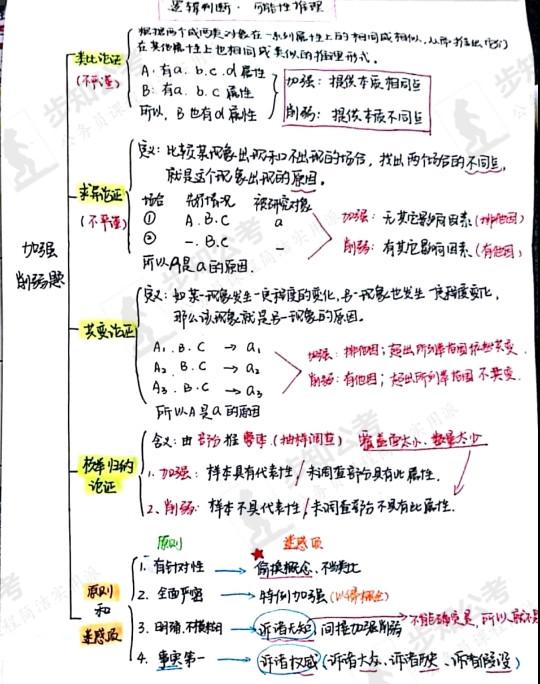 逻辑判断·可能性推理
加强
削弱题
类比论证
(不严谨)
根据两个或两类对象在一系列属性上的相同或相似,从而推出它们
在其他属性上也相同或类似的推理形式。
A:有a.b.c.d属性
B:有a.b.c属性
所以,B也有d属性
加强:提供本质相同点
削弱:提供本质不同点
求异论证
(不严谨)
定义:比较某现象出现和不出现的场合,找出两个场合的不同点,
就是这个现象出现的原因。
场合 先行情况 被研究对象
① A.B.C a
② -.B.C -
所以A是a的原因.
加强:无其它影响因素(排他因)
削弱:有其它影响因素(有他因)
共变论证
定义:如某一现象发生一定程度的变化,另一现象也发生一定程度变化,
那么该现象就是另一现象的原因。
A₁.B.C → a₁
A₂.B.C → a₂
A₃.B.C → a₃
所以A是a的原因
加强:排他因;超出所列举范围依然共变.
削弱:有他因;超出所列举范围不共变.
枚举归纳
论证
含义:由部分推整体(抽样调查) 覆盖面大小、数量大小
1.加强:样本具有代表性/未调查部分具有此属性.
2、削弱:样本不具代表性/未调查部分不具有此属性.
原则
和
迷惑项
原则 ★迷惑项
1.有针对性 → 偷换概念、不当类比
2.全面严密 → 特例加强(以偏概全)
3.明确,不模糊 → 诉诸无知,间接加强削弱 → 不能确定是,所以就不是
4.事实第一 → 诉诸权威(诉诸大众、诉诸历史、诉诸假设)
步知公考
公务员课